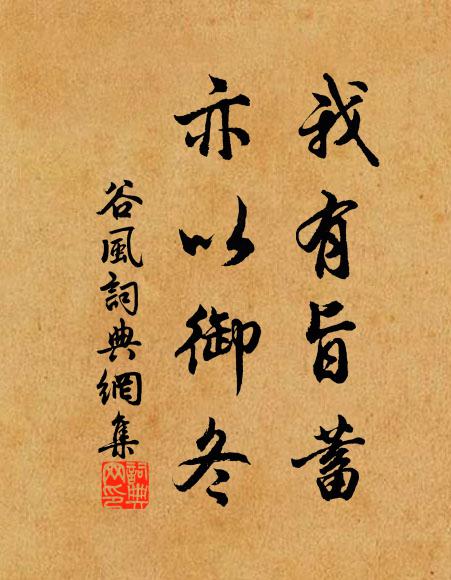 我有旨蓄
亦以御冬
谷風詞典網集
詞典網印